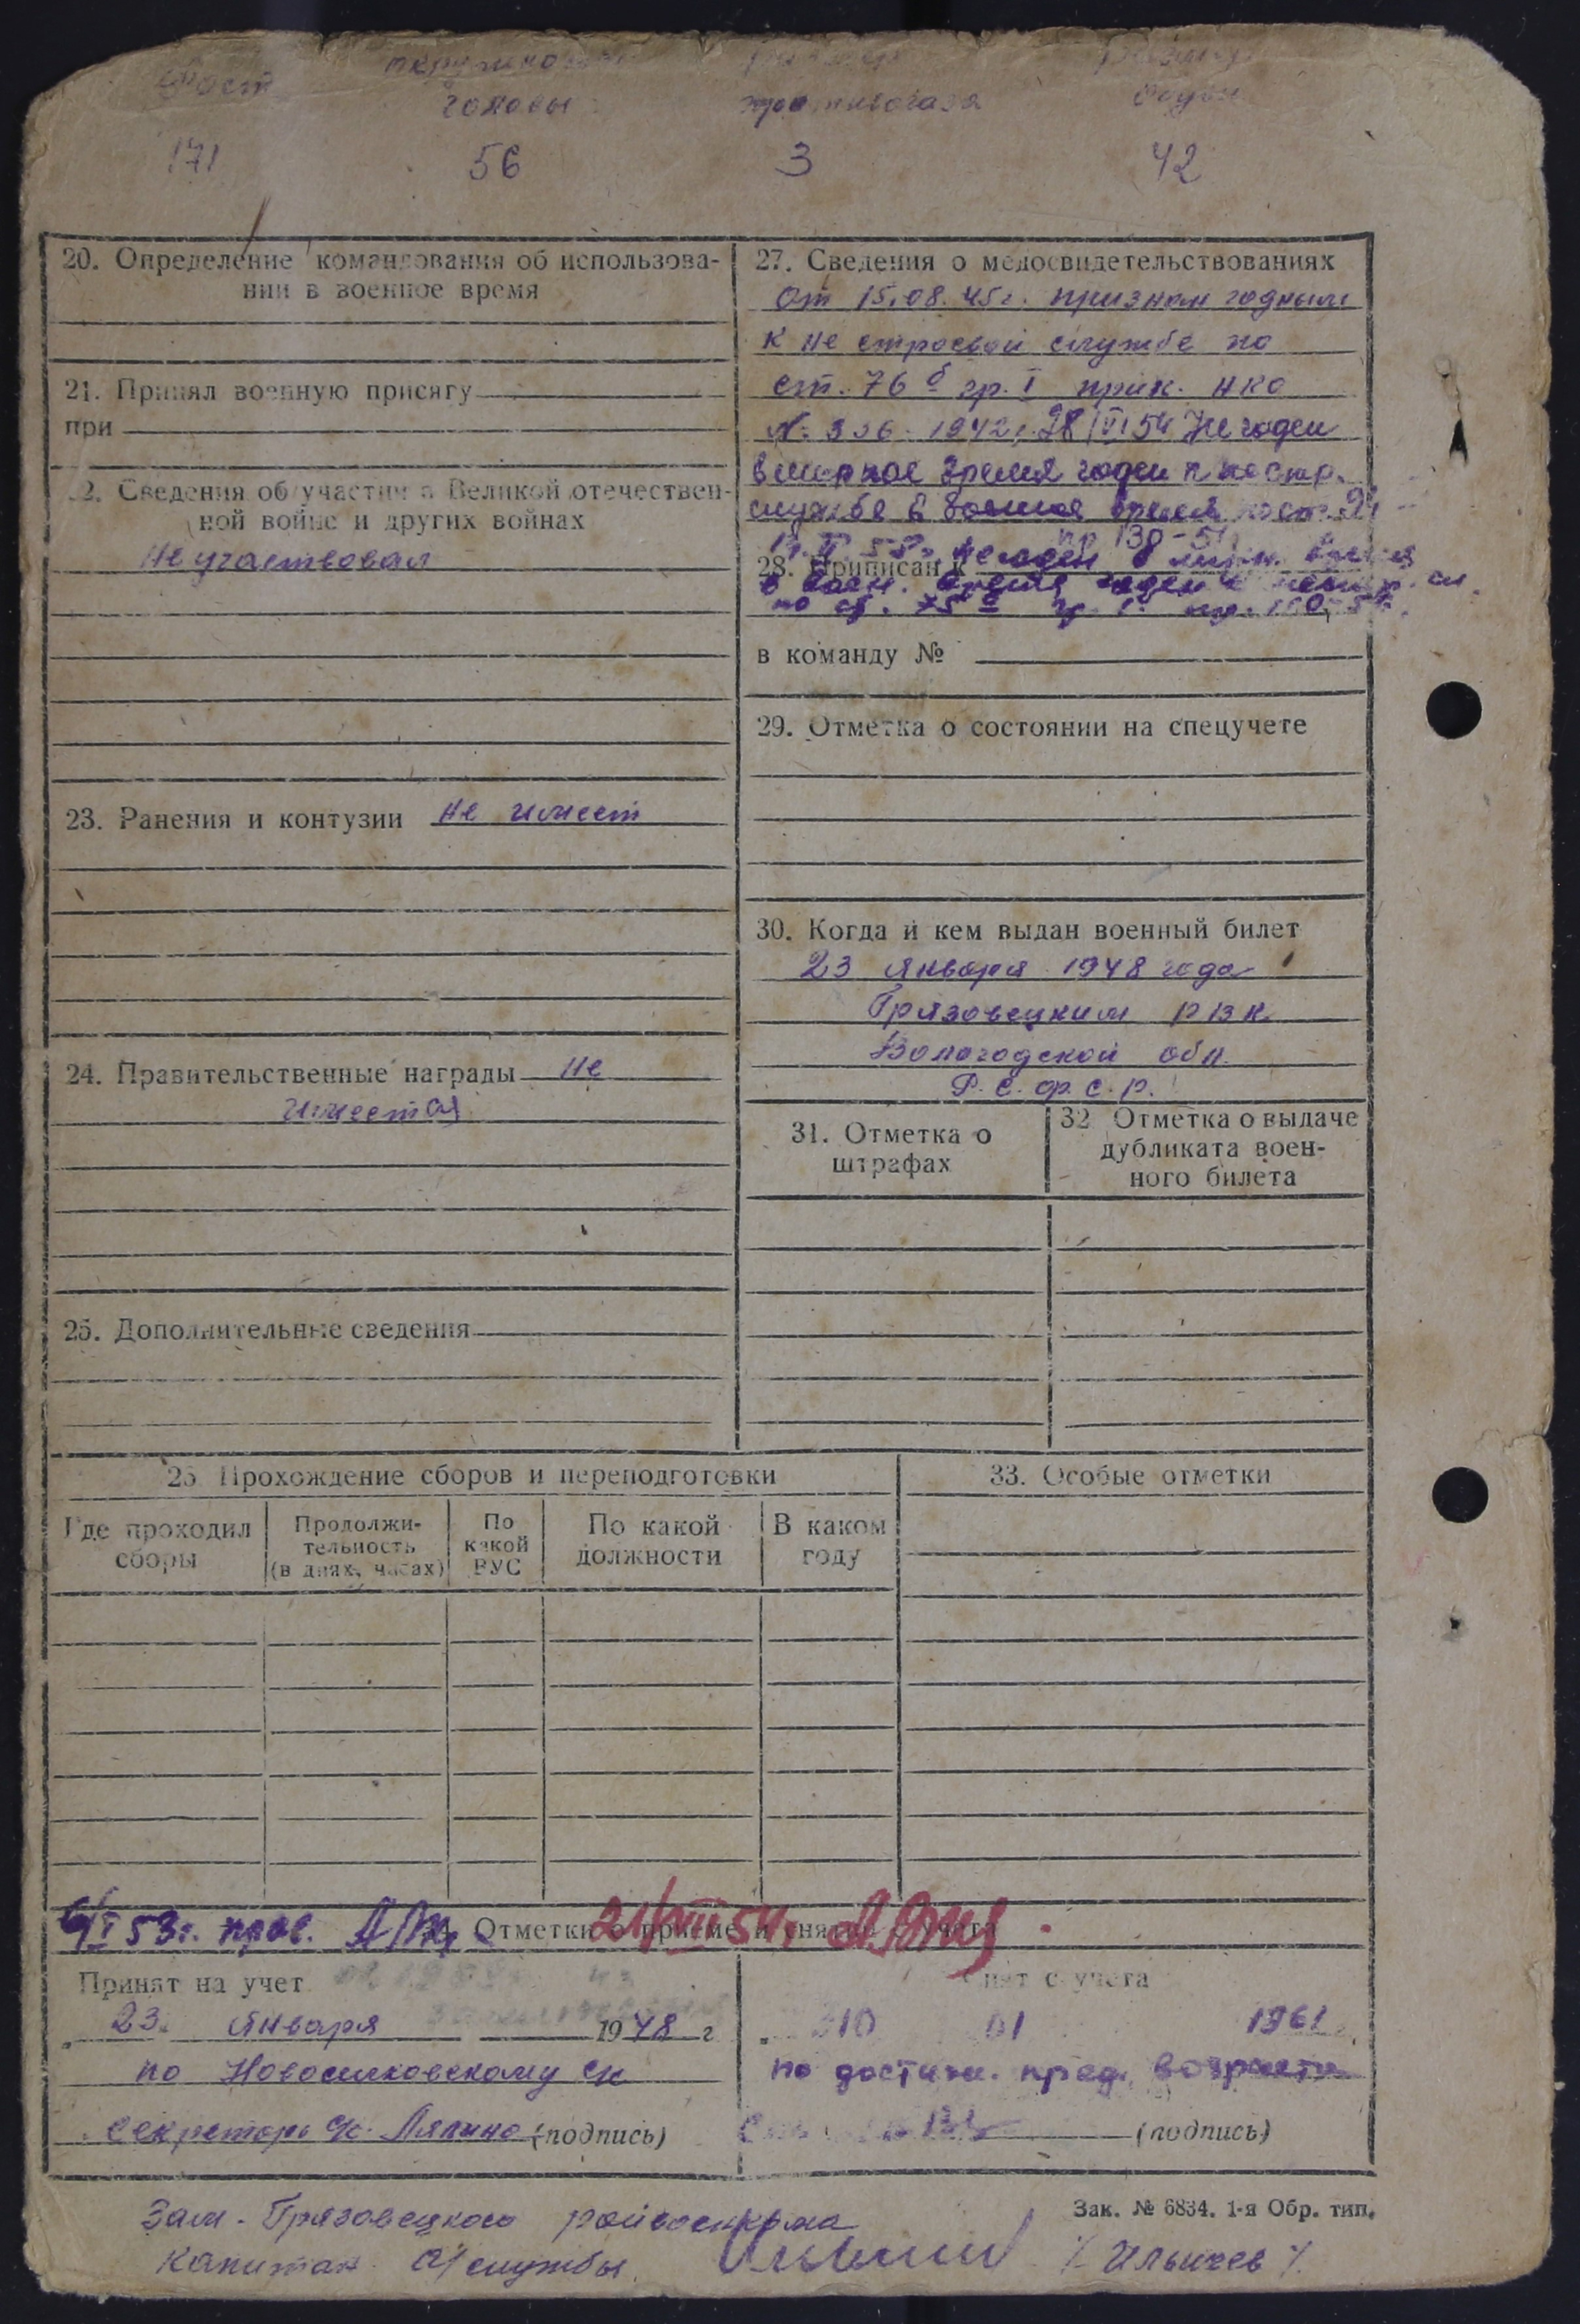 Рост
головы
противогаза
171 56 3 42
20. Определение командования об использова-
нии в военное время
21. Принял военную присягу
при
22. Сведения об участии в Великой отечествен-
ной войне и других войнах
Не участвовал
23. Ранения и контузии не имеет
24. Правительственные награды не
имеет
25. Дополнительные сведения
27. Сведения о медосвидетельствованиях
от 15.08.45г. признан годным
к не строевой службе по
ст. 76 б гр. I прик. НКО
№ 336 - 1942г. 28/VI 54 Не годен
в мирное время годен к нестр.
службе в военное время по ст.
пр 130-54
негоден в мирн. время
28. Приписан к
в воен. время годен к
по ст. 75 гр. 1.
в команду №
29. Отметка о состоянии на спецучете
30. Когда и кем выдан военный билет
23 января 1948 года
Грязовецким РВК
Вологодской обл.
Р.С.Ф.С.Р.
31. Отметка о
штрафах
32 Отметка о выдаче
дубликата воен-
ного билета
26 Прохождение сборов и переподготовки
Где проходил
сборы
Продолжи-
тельность
(в днях, часах)
По
какой
ВУС
По какой
должности
В каком
году
33. Особые отметки
53г. пров.
34. Отметки о приеме и снятии с учета
21/VIII 54г.
Принят на учет
23 января 1948 г
по Новосилковскому с/с
Секретарь с/с. Ляпина (подпись)
Снят с учета
10 01 1961
по достиж. пред. возраста
(подпись)
Зак. № 6834. 1-я Обр. тип.
Зам. Грязовецкого райвоенкома
Капитан а/службы / Ильичев /.